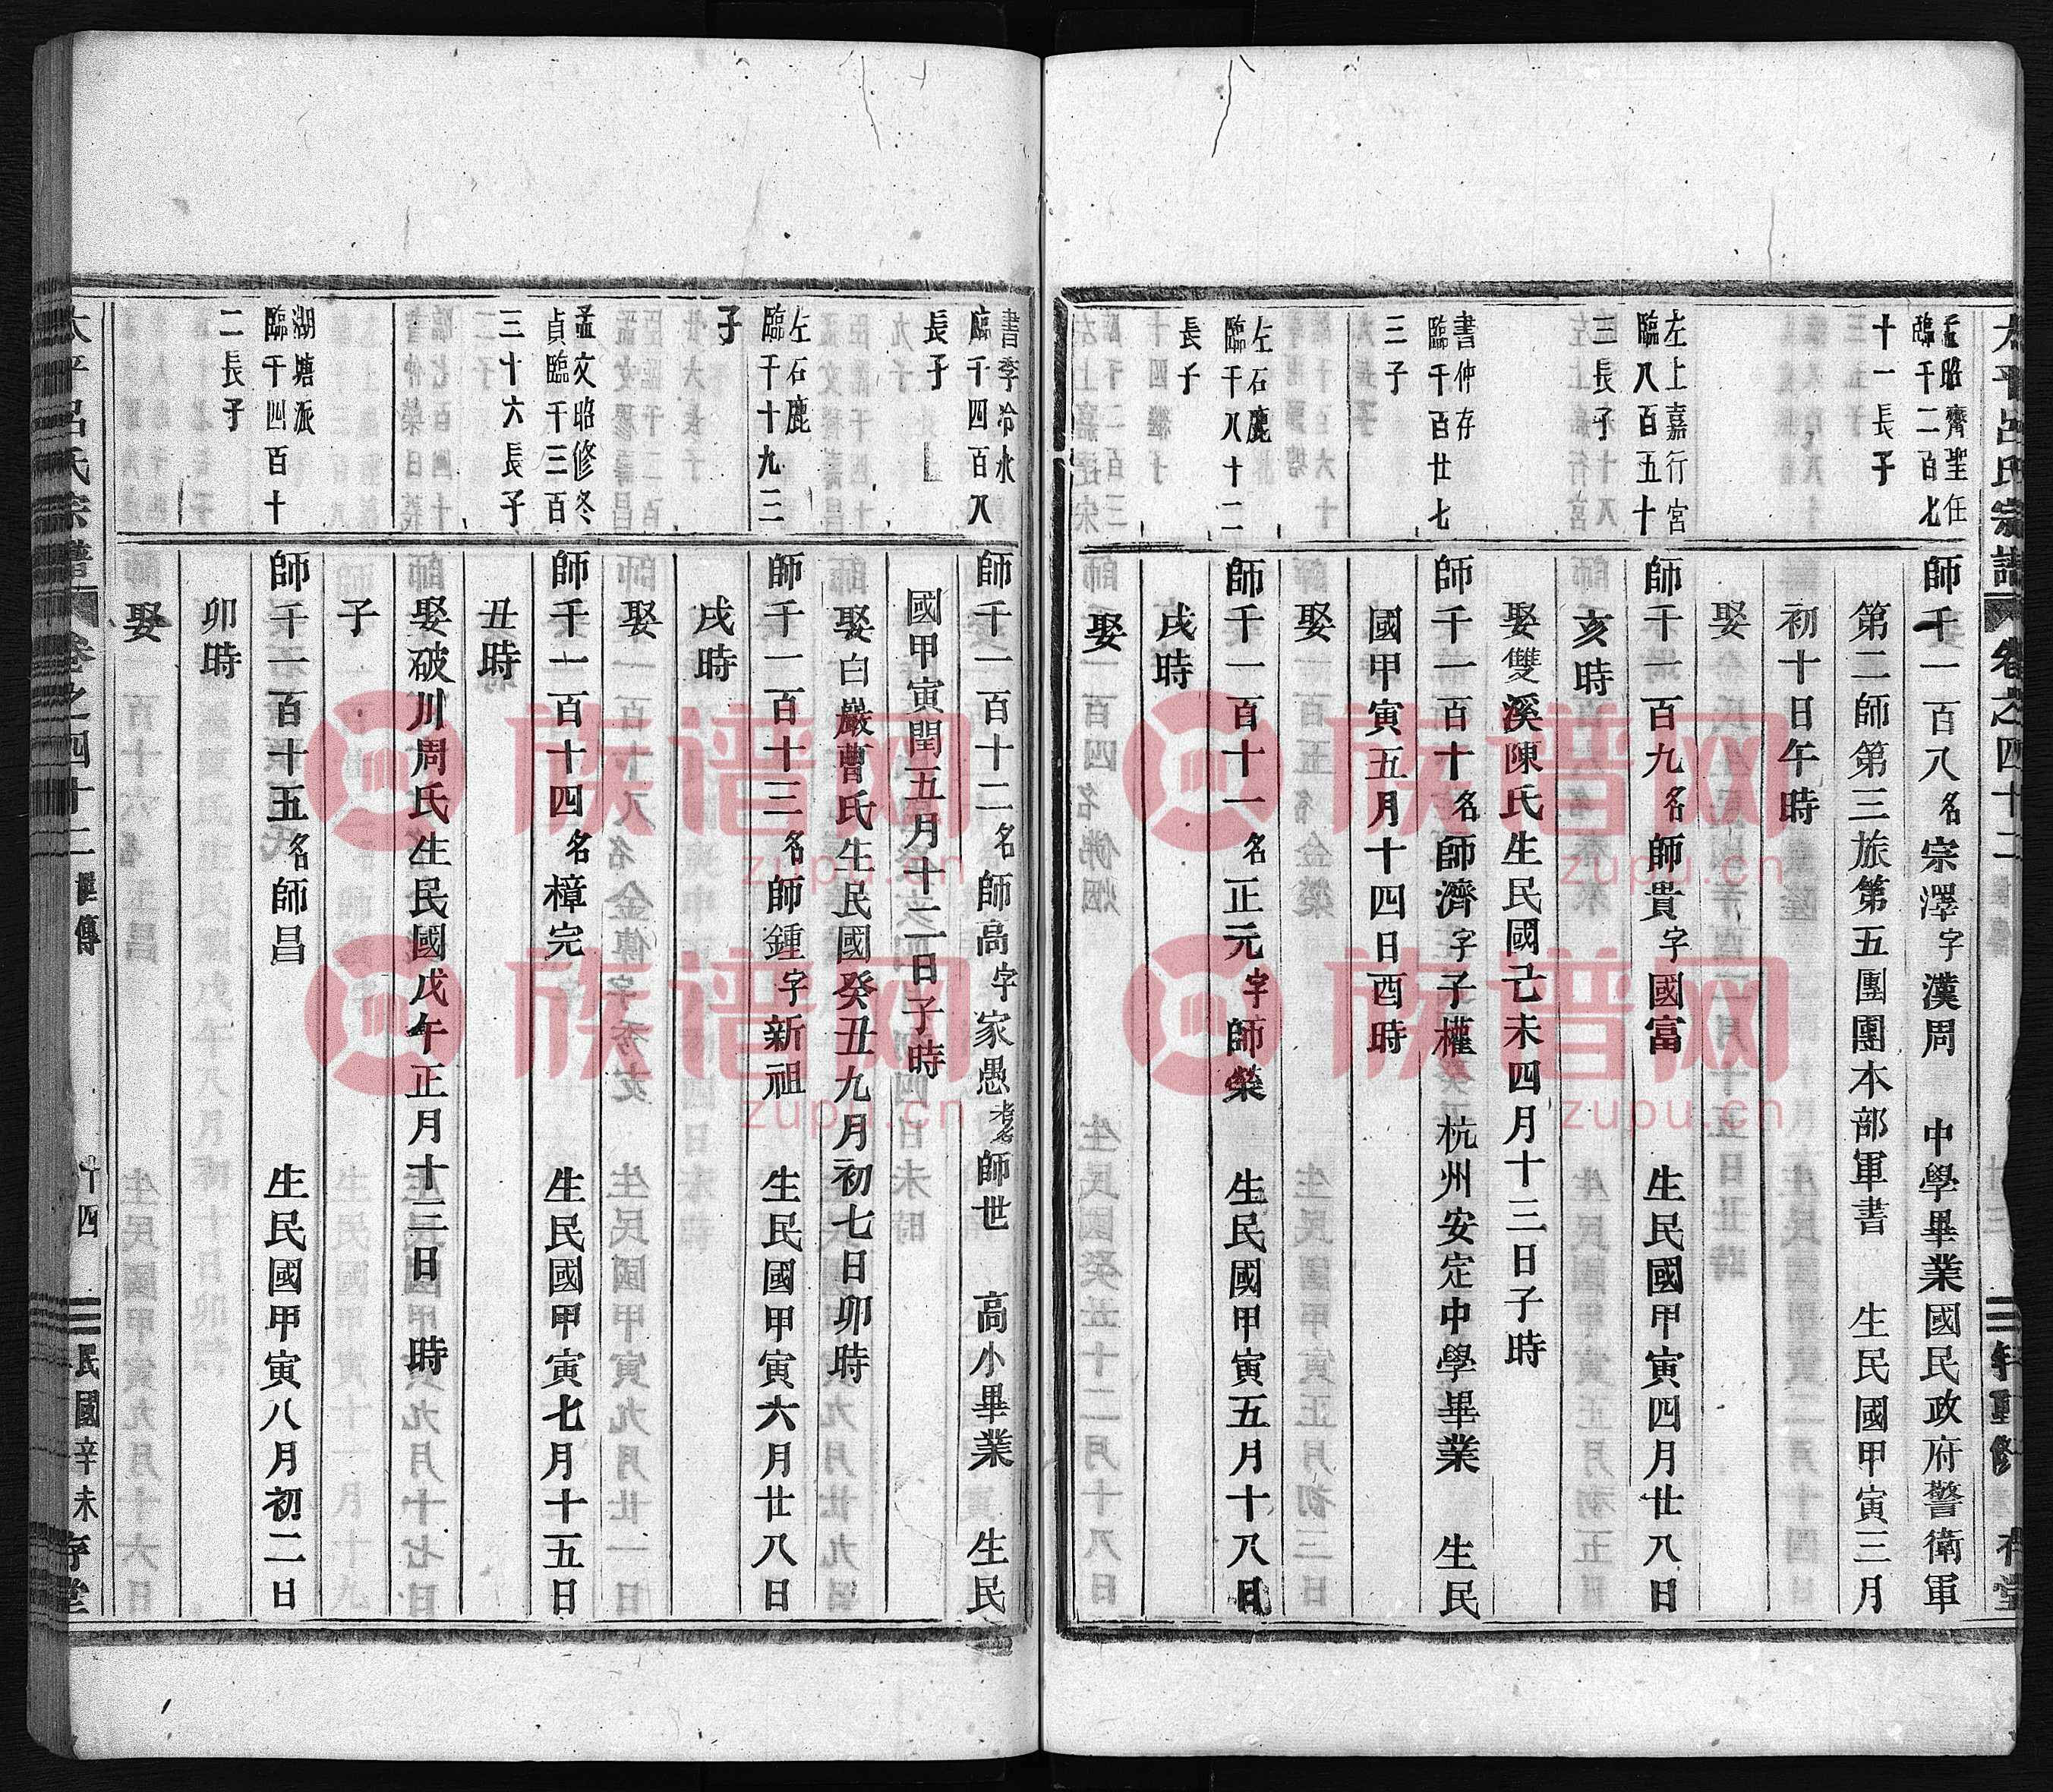 太平呂氏宗譜 卷之四十二
孟昭齊聖任
臨千二百七
十一長子
師千一百八名宗澤字漢周 中學畢業國民政府警衛軍
第二師第三旅第五團團本部軍書 生民國甲寅三月
初十日午時
娶
左上嘉行宮
臨八百五十
三長子
師千一百九名師貴字國富 生民國甲寅四月廿八日
亥時
娶雙溪陳氏生民國己未四月十三日子時
書仲存
臨千百廿七
三子
師千一百十名師濟字子權 杭州安定中學畢業 生民
國甲寅五月十四日酉時
娶
左石鹿
臨千八十二
長子
師千一百十一名正元字師榮 生民國甲寅五月十八日
戌時
娶
書季冷水
臨千四百八
長子
師千一百十二名師高字家愚 師世 高小畢業 生民
國甲寅閏五月十二日子時
娶白巖曹氏生民國癸丑九月初七日卯時
左石鹿
臨千十九三
子
師千一百十三名師鍾字新祖 生民國甲寅六月廿八日
戌時
娶
孟文昭修冬
貞臨千三百
三十六長子
師千一百十四名樟完 生民國甲寅七月十五日
丑時
娶破川周氏生民國戊午正月十三日 時
子
湖塘派
臨千四百十
二長子
師千一百十五名師昌 生民國甲寅八月初二日
卯時
娶
太平呂氏宗譜 卷之四十二 世傳 十四 民國辛未 存堂
族谱网
zupu.cn
族谱网
zupu.cn
族谱网
zupu.cn
族谱网
zupu.cn